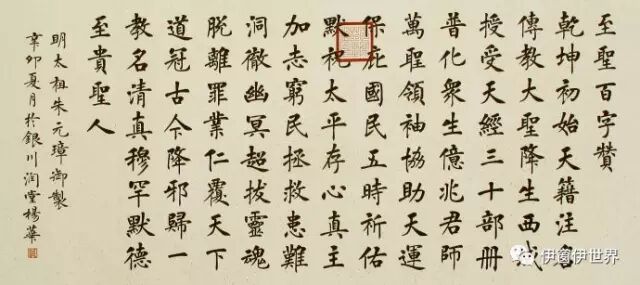 至聖百字讚
乾坤初始天籍注名
傳教大聖降生西域
授受天經三十部冊
普化衆生億兆君師
萬聖領袖協助天運
保庇國民五時祈佑
默祝太平存心真主
加志窮民拯救患難
洞徹幽冥超拔靈魂
脫離罪業仁覆天下
道冠古今降邪歸一
教名清真穆罕默德
至貴聖人
明太祖朱元璋御製
辛卯夏月於銀川潤堂楊華
伊窗伊世界